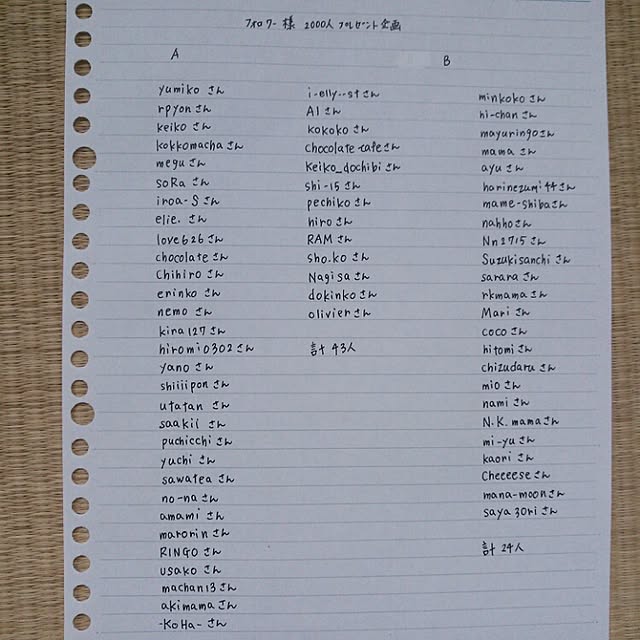 フォロワー様 2000人 プレゼント企画
A
yumiko さん
rpyon さん
keiko さん
kokkomacha さん
megu さん
soRa さん
iroa-S さん
elie. さん
love626 さん
chocolate さん
Chihiro さん
erinko さん
nemo さん
kira127 さん
hiromi0302 さん
yano さん
shiiiipon さん
utatan さん
saakii さん
puchicchi さん
yuchi さん
sawatea さん
no-na さん
amami さん
marorin さん
RINGO さん
usako さん
machan13 さん
akimama さん
-KoHa- さん
i-elly..st さん
AI さん
kokoko さん
chocolate-cafe さん
Keiko_dochibi さん
shi-15 さん
pechiko さん
hiro さん
RAM さん
sho.ko さん
Nagisa さん
dokinko さん
olivier さん
計 43人
B
minkoko さん
hi-chan さん
mayuringo さん
mama さん
ayu さん
harinezumi44 さん
mame-shiba さん
nahho さん
Nn2715 さん
Suzukisanchi さん
sarara さん
rkmama さん
Mari さん
coco さん
hitomi さん
chizudaru さん
mio さん
nami さん
N.K.mama さん
mi-yu さん
kaori さん
Cheeeese さん
mana-moon さん
saya30ri さん
計 24人